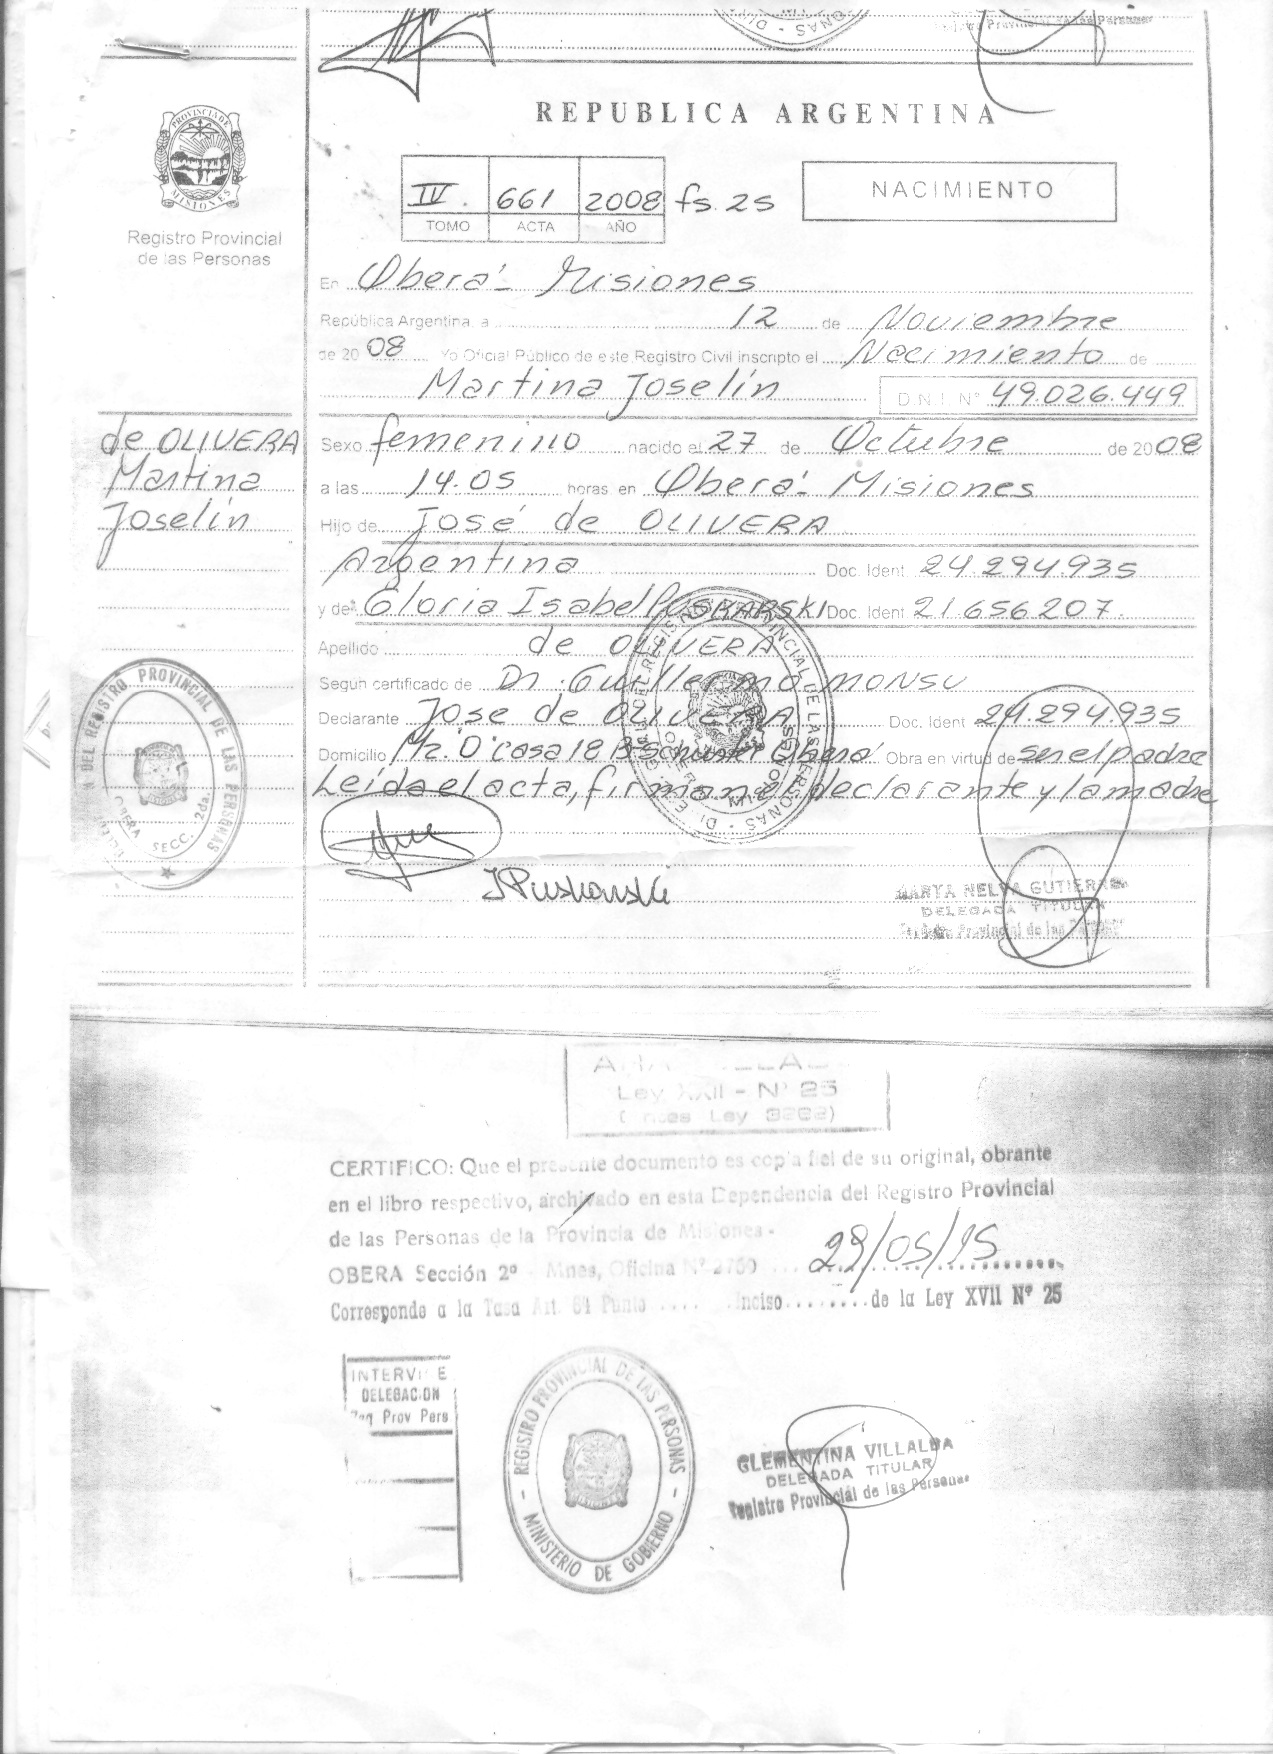 REPUBLICA ARGENTINA
PROVINCIA DE
MISIONES
Registro Provincial
de las Personas
IV. 661 2008 fs. 25
TOMO ACTA AÑO
NACIMIENTO
En Oberá - Misiones
República Argentina a 12 de Noviembre
de 2008 Yo Oficial Público de este Registro Civil inscripto el Nacimiento de
Martina Joselín D.N.I. N° 49.026.449
de OLIVERA
Martina
Joselín
Sexo femenino nacido el 27 de Octubre de 2008
a las 14.05 horas en Oberá - Misiones
Hijo de José de OLIVERA
Argentina Doc. Ident 24.294.935
y de Gloria Isabel PUSKARSKI Doc. Ident 21.656.207.
Apellido de OLIVERA
Segun certificado de Dr. Guillermo MONSU
Declarante José de OLIVERA Doc. Ident 24.294.935
Domicilio Mz. "O" casa 18 B Schuster Oberá Obra en virtud de ser el padre
Leída el acta, firman el declarante y la madre
DEL REGISTRO PROVINCIAL DE LAS PERSONAS
OBERA SECC. 2da.
MARTA NELVA GUTIERREZ
DELEGADA TITULAR
Registro Provincial de las Personas
Ley XXII - N° 25
(antes Ley
CERTIFICO: Que el presente documento es copia fiel de su original, obrante
en el libro respectivo, archivado en esta Dependencia del Registro Provincial
de las Personas de la Provincia de Misiones.-
OBERA Sección 2º - Mnes, Oficina Nº 2760 29/05/15
Corresponde a la Tasa Art. 64 Punto .... Inciso ........ de la Ley XVII Nº 25
INTERVINE
DELEGACION
Reg Prov Pers
REGISTRO PROVINCIAL DE LAS PERSONAS
- MINISTERIO DE GOBIERNO -
CLEMENTINA VILLALBA
DELEGADA TITULAR
Registro Provincial de las Personas